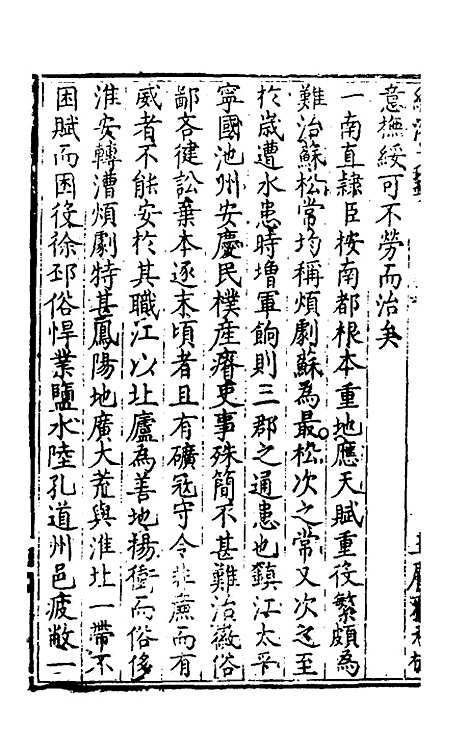 意撫綏可不勞而治矣
一南直隸臣按南都根本重地應天賦重役繁頗為
難治蘇松常均稱煩劇蘇為最松次之常又次之至
於歲遭水患時增軍餉則三郡之通患也鎮江太平
寧國池州安慶民樸産瘠吏事殊簡不甚難治徽俗
鄙吝健訟棄本逐末頃者且有礦寇守令非廉而有
威者不能安於其職江以北廬為善地揚衝而俗侈
淮安轉漕煩劇特甚鳳陽地廣大荒與淮北一帶不
困賦而困役徐邳俗悍業鹽水陸孔道州邑疲敝一